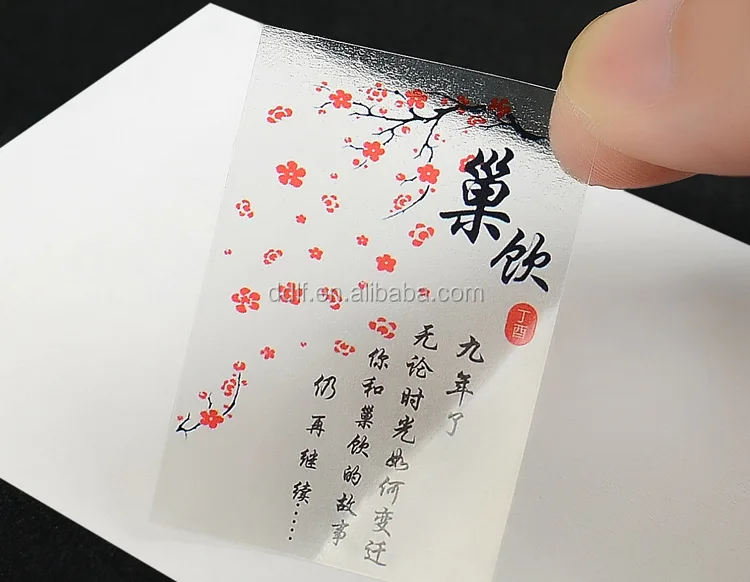 巢饮
丁酉
九年了
无论时光如何变迁
你和巢饮的故事
仍再继续······
ddlf.en.alibaba.com